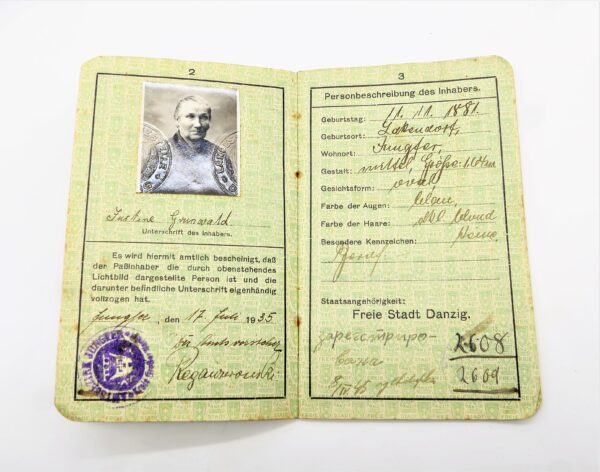 2
Justine Grunwald
Unterschrift des Inhabers.
Es wird hiermit amtlich bescheinigt, daß
der Paßinhaber die durch obenstehendes
Lichtbild dargestellte Person ist und die
darunter befindliche Unterschrift eigenhändig
vollzogen hat.
Jungfer, den 17 Juli 1935
Der Amtsvorsteher
3
Personbeschreibung des Inhabers.
Geburtstag: 11. 11. 1881.
Geburtsort: Lakendorf,
Wohnort: Jungfer,
Gestalt: mittel, Größe:
Gesichtsform: oval
Farbe der Augen: blau,
Farbe der Haare: blond
Besondere Kennzeichen: Keine
Beruf
Staatsangehörigkeit:
Freie Stadt Danzig.
зарегистриро-
вана
2608
2609